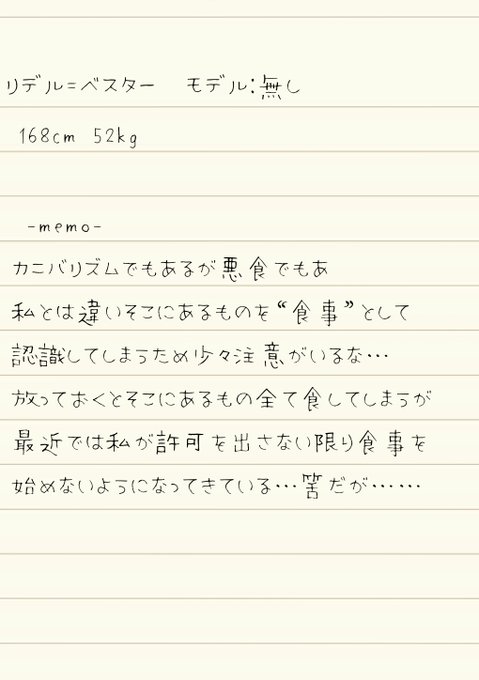 リデル=ベスター　モデル:無し
168cm 52kg
-memo-
カニバリズムでもあるが悪食でもあ
私とは違いそこにあるものを“食事”として
認識してしまうため少々注意がいるな…
放っておくとそこにあるもの全て食してしまうが
最近では私が許可を出さない限り食事を
始めないようになってきている…筈だが……